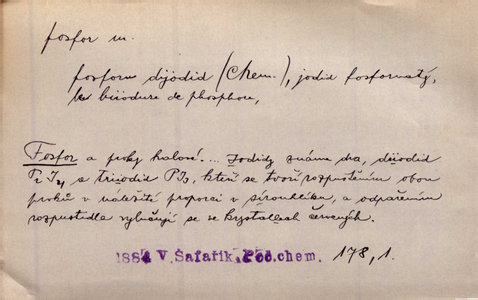 fosfor m.
fosforu dijodid (Chem.), jodid fosfornatý,
le biiodure de phosphore,
Fosfor a prvky halové.... Jodidy známe dva, dijodid
P₂I₄ a trijodid PI₃, kteří se tvoří rozpuštěním obou
prvků v náležité proporci v sírouhlíku, a odpařením
rozpustidla vylučují se ve krystallech červených.
1884 V. Šafařík, Poč.chem. 178,1.